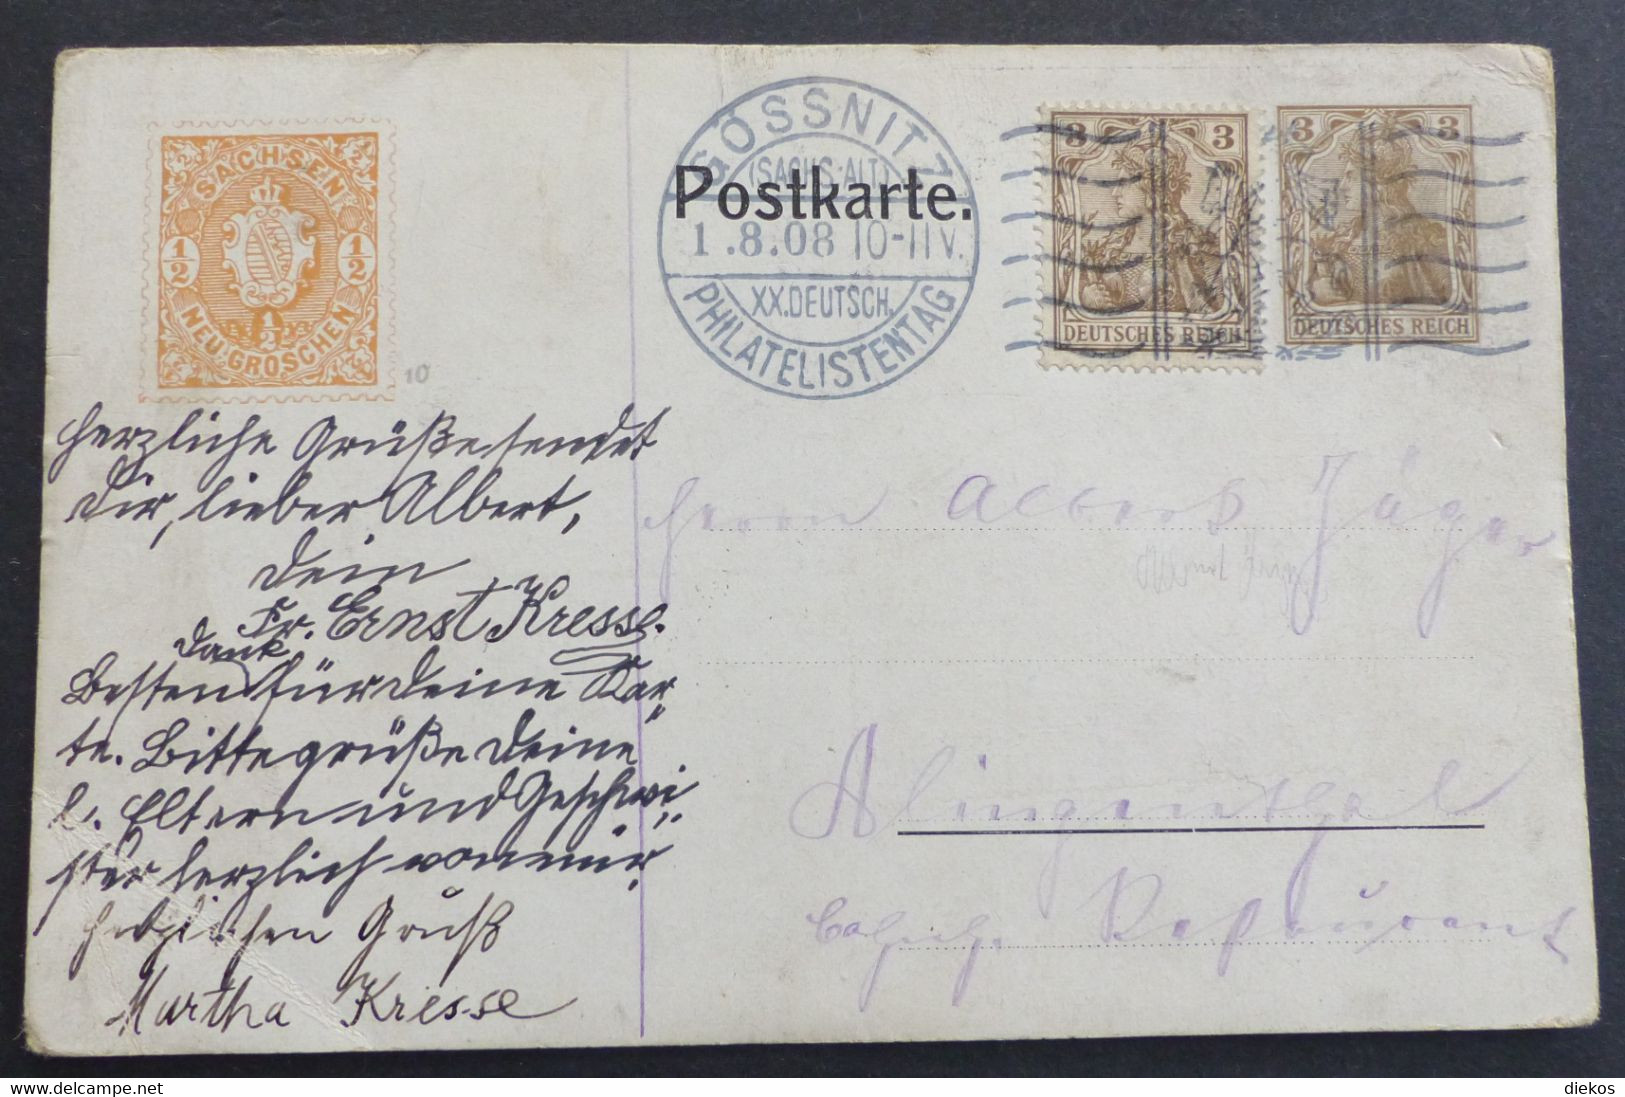 SACHSEN
1/2
1/2
1/2
NEU-GROSCHEN
10
GÖSSNITZ
(SACHS. ALT.)
Postkarte.
1.8.08 10-11 V.
XX. DEUTSCH.
PHILATELISTENTAG
3 3
DEUTSCHES REICH
3 3
DEUTSCHES REICH
Herzliche Grüße sendet
Dir, lieber Albert,
Dein
Fr. Ernst Kresse.
Dank
Besten für Deine Kar-
te. Bitte grüße Deine
l. Eltern und Geschwi-
ster herzlich von mir.
Herzlichen Gruß
Martha Kresse
Herrn Albert Jäger
Klingenthal
Bahnh. Restaurant
diekos